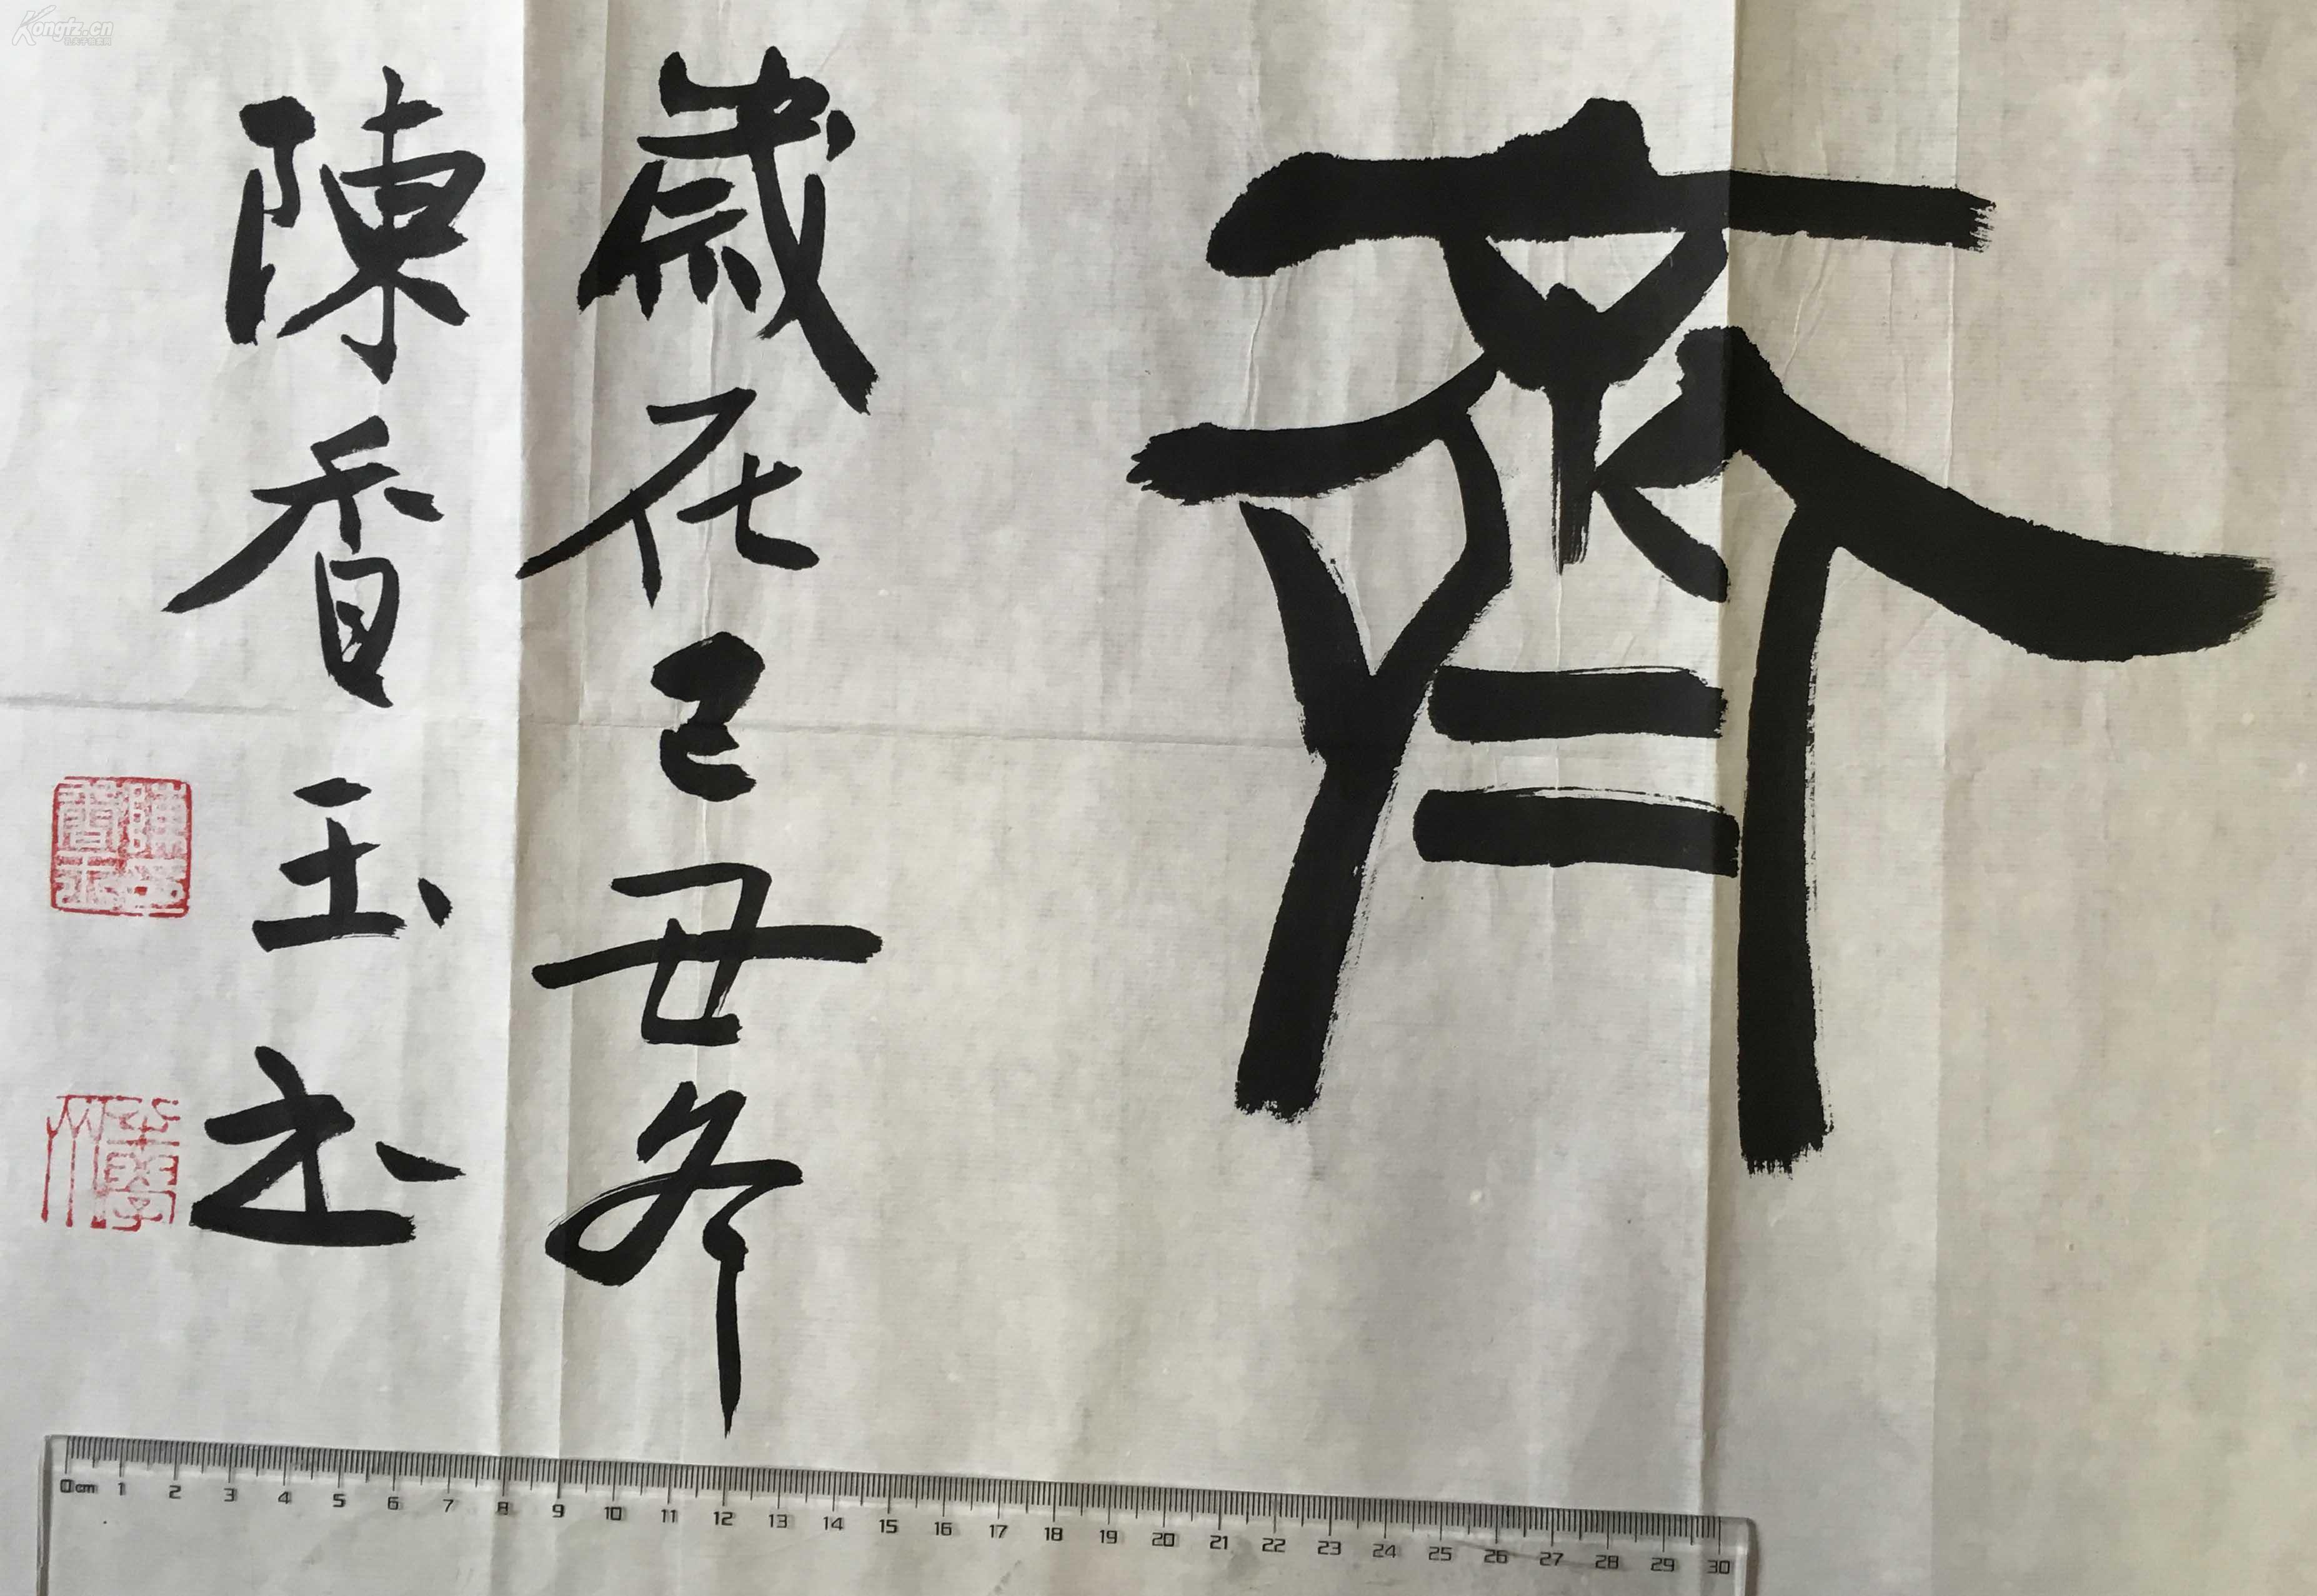 齊
歲在己丑冬
陳香玉书
陳印香玉
Kongfz.cn
0cm 1 2 3 4 5 6 7 8 9 10 11 12 13 14 15 16 17 18 19 20 21 22 23 24 25 26 27 28 29 30